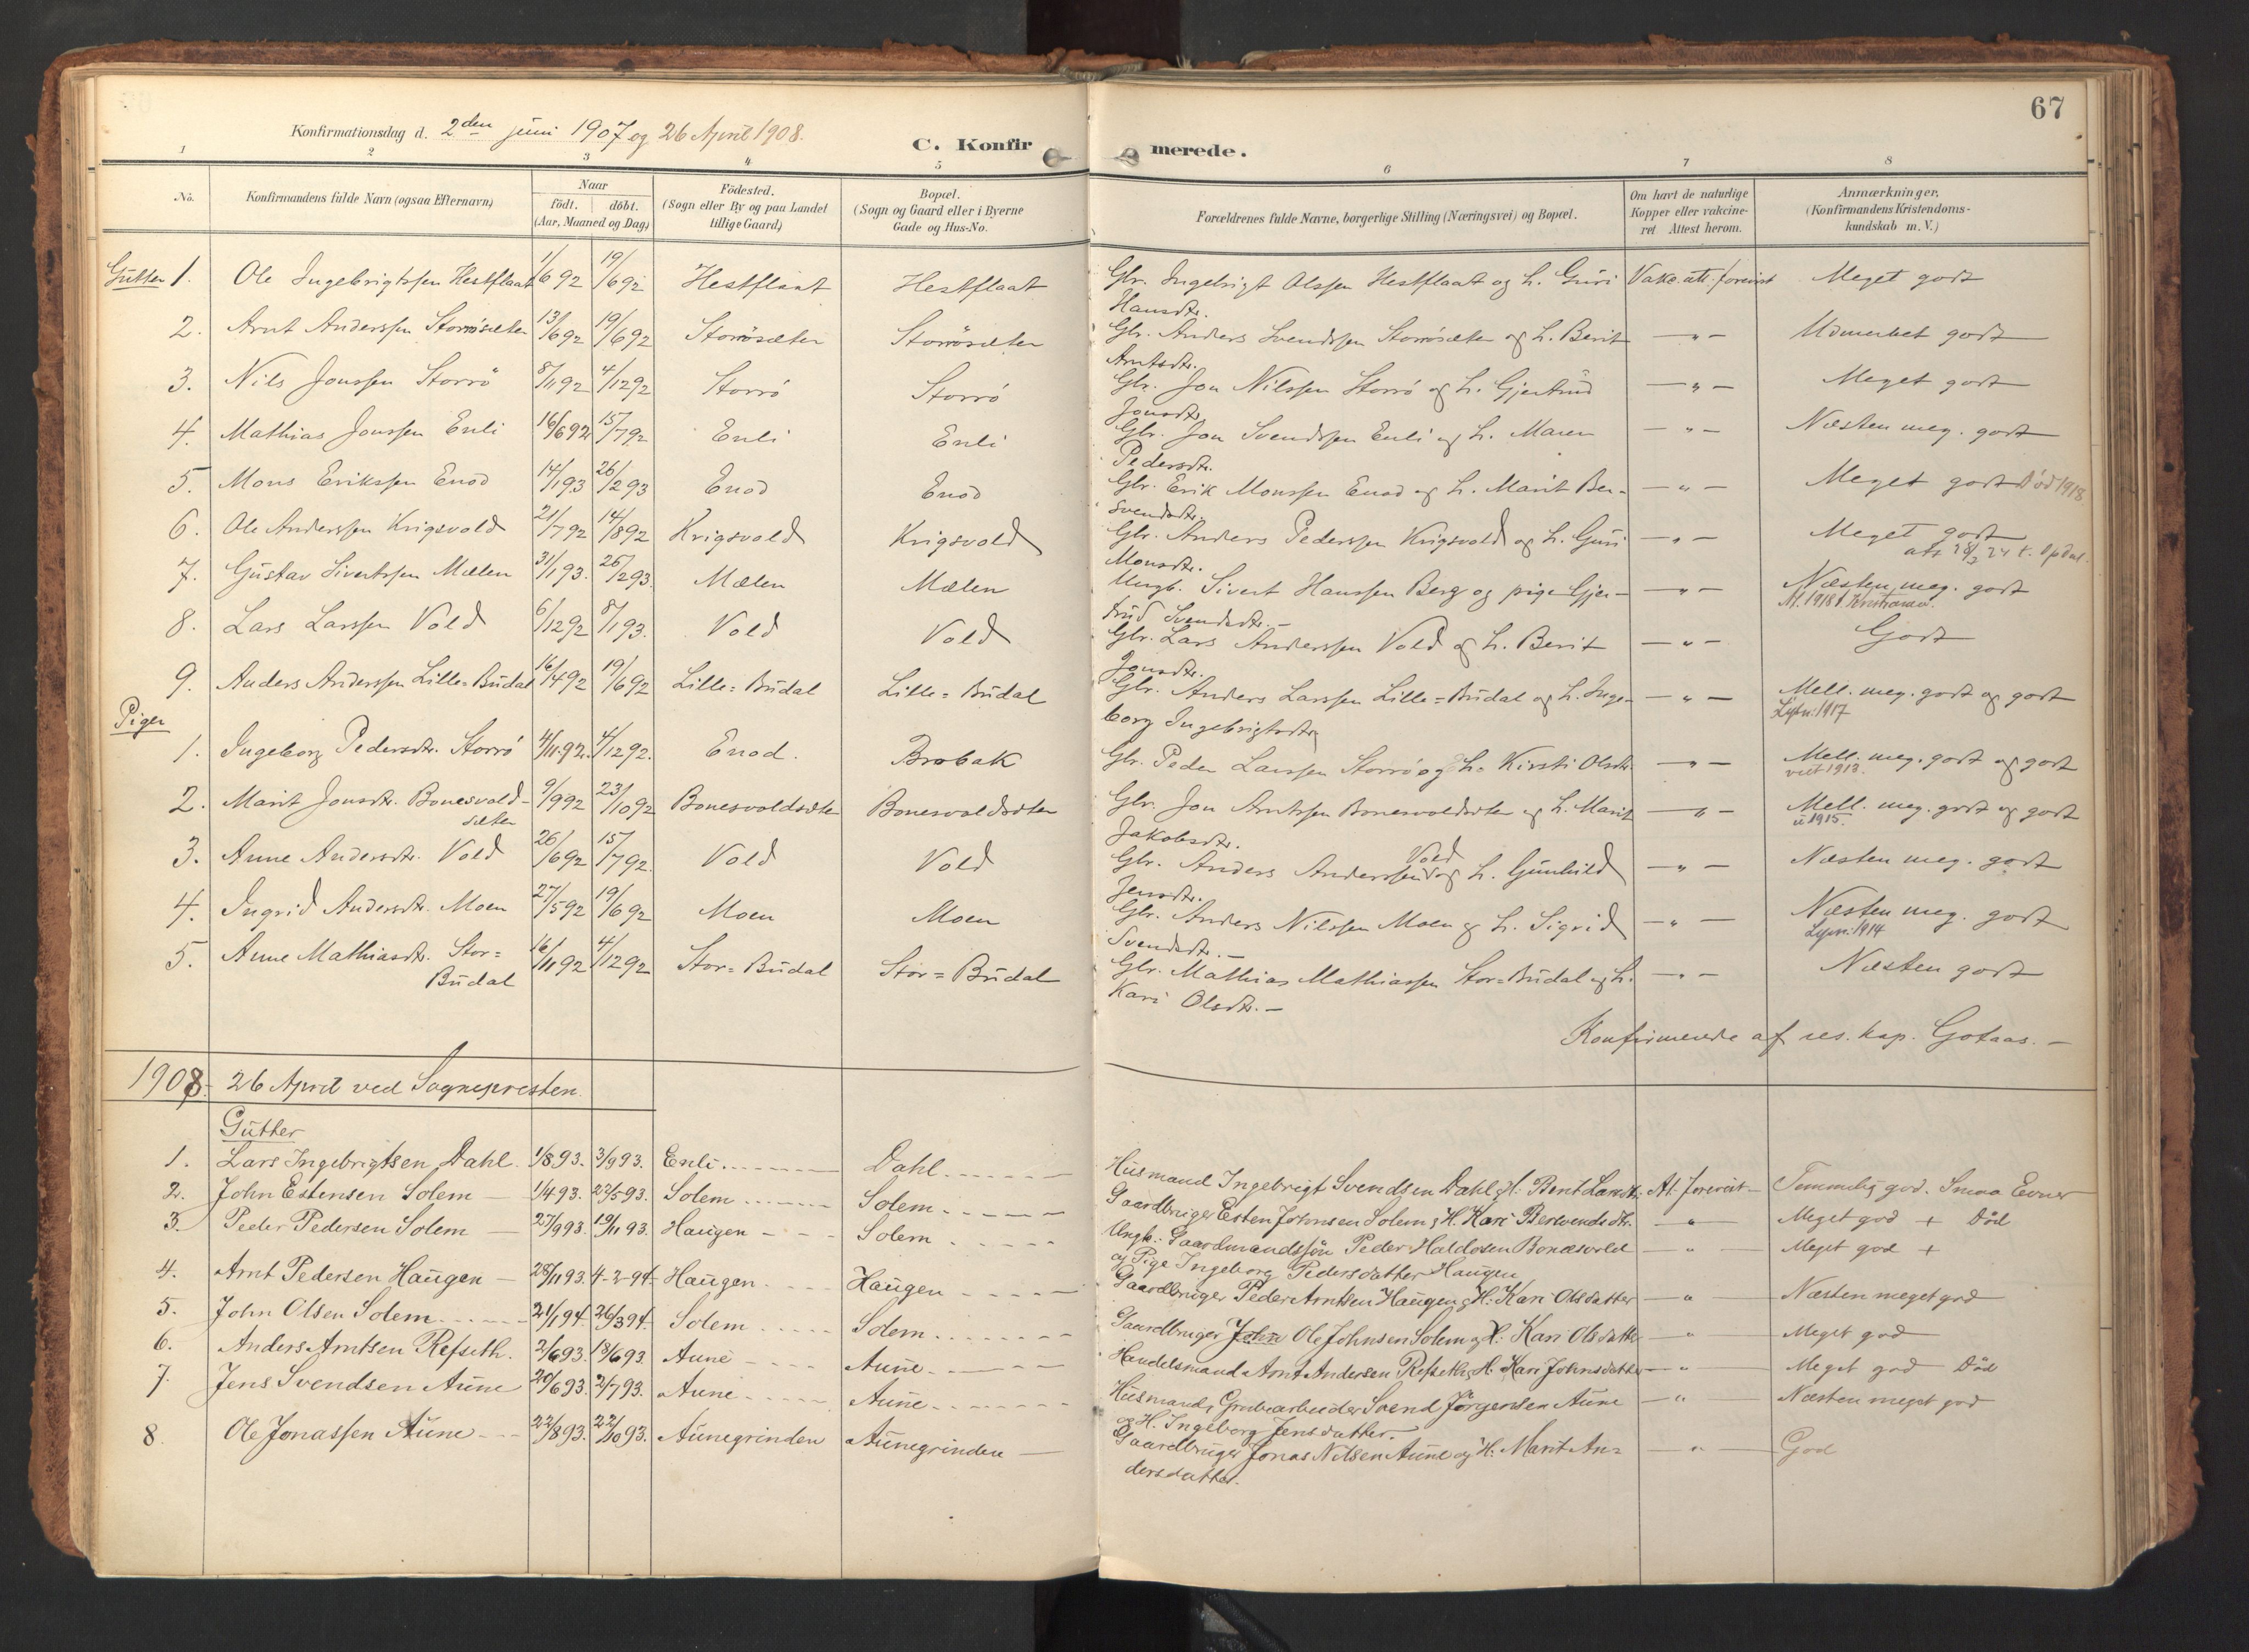 67
Konfirmationsdag d. 2den juni 1907 og 26 April 1908.
C. Konfirmerede.
1 2 3 4 5 6 7 8
No. Konfirmandens fulde Navn (ogsaa Efternavn) Naar født. døbt. (Aar, Maaned og Dag) Födested. (Sogn eller By og paa Landet tillige Gaard) Bopæl. (Sogn og Gaard eller i Byerne Gade og Hus-No. Forældrenes fulde Navne, borgerlige Stilling (Næringsvei) og Bopæl. Om havt de naturlige Kopper eller vakcineret Attest herom. Anmærkninger. (Konfirmandens Kristendomskundskab m. V.)
Gutter 1. Ole Ingebrigtssen Hestflaat 1/6 92 19/6 92 Hestflaat Hestflaat Gbr. Ingebrigt Olssen Hestflaat og h. Guri Vakc. att. forevist Meget godt
Hansdtr.
2. Arnt Anderssen Storrösæter 13/6 92 19/6 92 Storrösæter Storrösæter Gbr. Anders Svendssen Storrösæter og h. Berit — " — Udmerket godt
Arntsdtr.
3. Nils Jonssen Storrö 8/11 92 4/12 92 Storrö Storrö Gbr. Jon Nilssen Storrö og h. Gjertrud — " — Meget godt
Jonsdtr.
4. Mathias Jonssen Enli 16/6 92 15/7 92 Enli Enli Gbr. Jon Svendssen Enli og h. Maren — " — Næsten meg. godt
Pedersdtr.
5. Mons Erikssen Enod 14/1 93 26/2 93 Enod Enod Gbr. Erik Monssen Enod og h. Marit Ber- — " — Meget godt Död 1918
svendsdtr.
6. Ole Anderssen Krigsvold 21/7 92 14/8 92 Krigsvold Krigsvold Gbr. Anders Pederssen Krigsvold og h. Guri — " — Meget godt
att 28/2 24 t. Opdal.
Monsdtr.
7. Gustav Sivertssen Mælen 31/1 93. 26/2 93. Mælen Mælen Ungk. Sivert Hanssen Berg og pige Gjer- — " — Næsten meg. godt
Al. 1918 t. Kristiansu.
trud Svendsdtr. —
8. Lars Larssen Vold 6/12 92 8/1 93. Vold Vold Gbr. Lars Anderssen Vold og h. Berit — " — Godt
Jonsdtr.
9. Anders Anderssen Lille=Budal 16/4 92 19/6 92 Lille=Budal Lille=Budal Gbr. Anders Larssen Lille=Budal og h. Inge- — " — Mell. meg. godt og godt
1917
borg Ingebrigtsdtr
Piger
1. Ingeborg Pedersdtr. Storrö 4/11 92. 4/12 92. Enod. Brobak Gbr. Peder Larssen Storrö og h. Kirsti Olsdtr. — " — Mell. meg. godt og godt
1913.
2. Marit Jonsdtr. Bonesvold- 9/9 92 23/10 92 Bonesvoldsæter Bonesvoldsæter Gbr. Jon Arntssen Bonesvoldsæter og h. Marit — " — Mell. meg. godt og godt
sæter
1915.
Jakobsdtr.
3. Anne Andersdtr. Vold 26/6 92 15/7 92. Vold Vold Gbr. Anders Anderssen Vold og h. Gunhild — " — Næsten meg. godt
Jensdtr.
4. Ingrid Andersdtr. Moen 27/5 92 19/6 92 Moen Moen Gbr. Anders Nilssen Moen og h. Sigrid — " — Næsten meg. godt
1914
Svendsdtr. —
5. Anne Mathiasdtr. Stor= 16/11 92 4/12 92 Stor=Budal Stor=Budal Gbr. Mathias Mathiassen Stor=Budal og h. — " — Næsten godt
Budal
Kari Olsdtr. —
Konfirmerede af res. kap. Gotaas. —
1908. 26 April ved Sognepresten.
Gutter
1. Lars Ingebrigtsen Dahl. 1/8 93. 3/9 93. Enli Dahl Husmand Ingebrigt Svendsen Dahl og H. Berit Larsdtr. At. forevist Temmelig god. Smaa Evner
2. John Estensen Solem 1/4 93. 27/5 93. Solem Solem Gaardbruger Esten Johnsen Solem og H. Kari Bersvendsdtr. — " — Meget god + Död
3. Peder Pedersen Solem 27/9 93. 19/11 93. Haugen Solem Ungk.: Gaardmandssøn Peder Haldosen Bonæsvold — " — Meget god +
og Pige Ingeborg Pedersdatter Haugen
4. Arnt Pedersen Haugen 28/11 93. 4-2-94. Haugen Haugen Gaardbruger Peder Arntsen Haugen og H: Kari Olsdatter — " — Næsten meget god
5. John Olsen Solem 21/1 94. 26/3 94. Solem Solem Gaardbruger John Ole Johnsen Solem og H: Kari Olsdatter — " — Meget god
6. Anders Arntsen Refseth. 2/6 93. 18/6 93. Aune Aune Handelsmand Arnt Andersen Refseth og H. Kari Johnsdatter — " — Meget god Död
7. Jens Svendsen Aune 20/6 93. 2/7 93. Aune Aune Husmand og Grubearbeider Svend Jörgensen Aune — " — Næsten meget god
og H. Ingeborg Jensdatter.
8. Ole Jonassen Aune 22/8 93. 22/10 93. Aunegrinden Aunegrinden Gaardbruger Jonas Nilsen Aune og H: Marit An= — " — God
dersdatter.